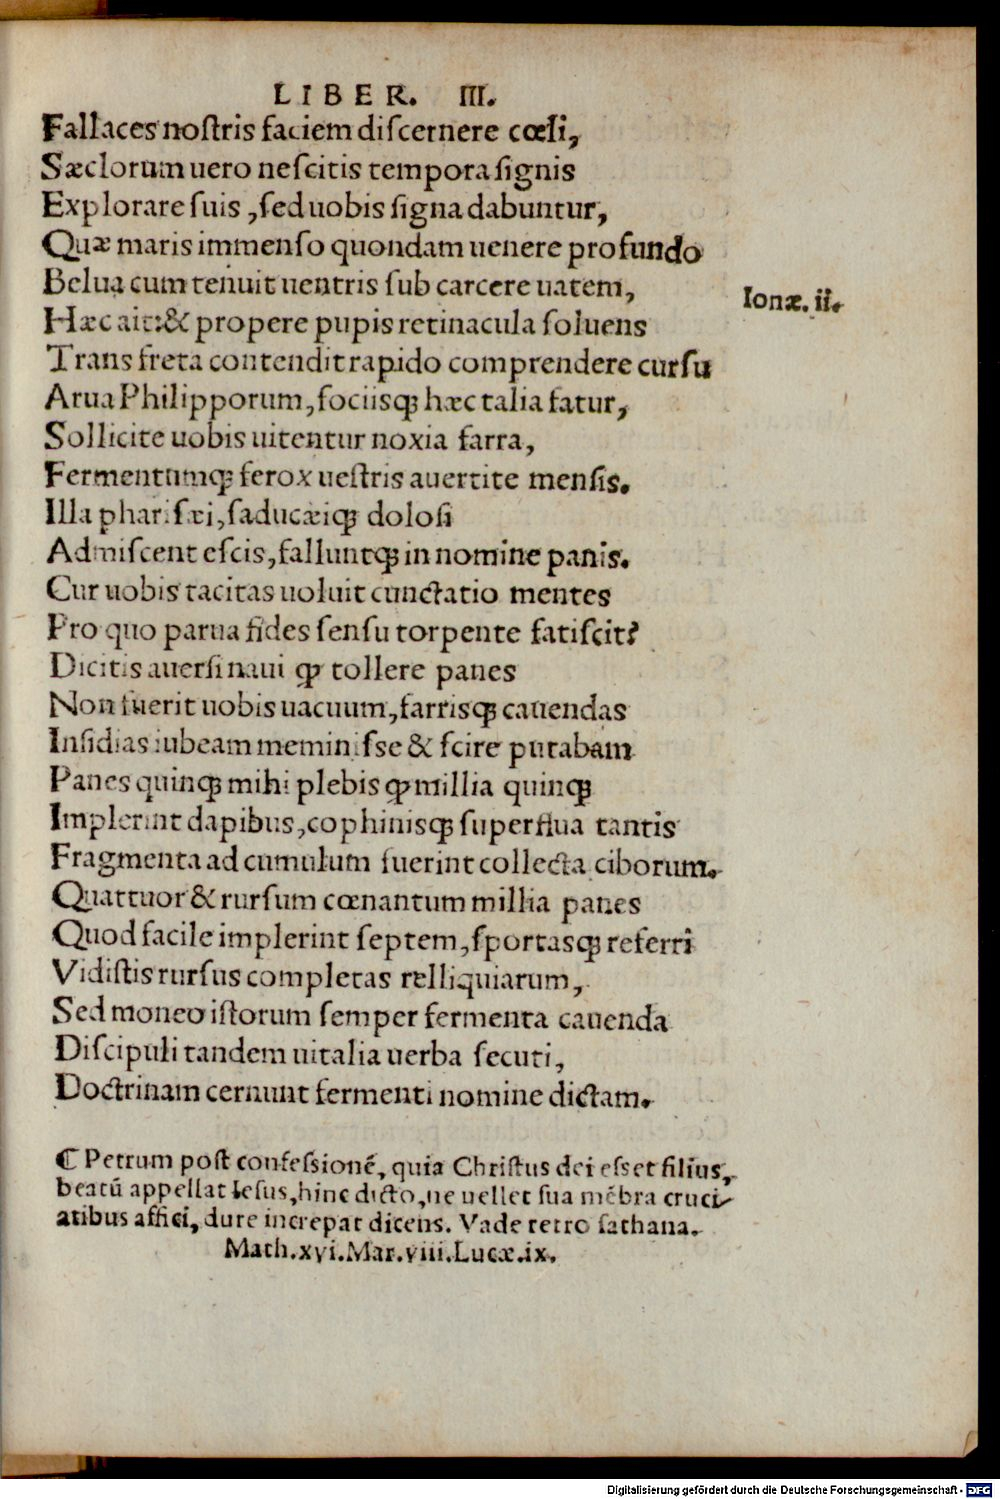 LIBER. III.
Fallaces nostris faciem discernere cœli,
Sæclorum uero nescitis tempora signis
Explorare suis, sed uobis signa dabuntur,
Quæ maris immenso quondam uenere profundo
Belua cum tenuit uentris sub carcere uatem,
Ionæ. ii.
Hæc ait: & propere pupis retinacula soluens
Trans freta contendit rapido comprendere cursu
Arua Philipporum, sociisqꝫ hæc talia fatur,
Sollicite uobis uitentur noxia farra,
Fermentumqꝫ ferox uestris auertite mensis.
Illa pharisæi, saducæiqꝫ dolosi
Admiscent escis, falluntqꝫ in nomine panis.
Cur uobis tacitas uoluit cunctatio mentes
Pro quo parua fides sensu torpente fatiscit?
Dicitis auersi naui ꝙ tollere panes
Non fuerit uobis uacuum, farrisqꝫ cauendas
Insidias iubeam meminisse & scire putabam
Panes quinqꝫ mihi plebis ꝙ millia quinqꝫ
Implerint dapibus, cophinisqꝫ superflua tantis
Fragmenta ad cumulum fuerint collecta ciborum.
Quattuor & rursum cœnantum millia panes
Quod facile implerint septem, sportasqꝫ referri
Vidistis rursus completas relliquiarum,
Sed moneo istorum semper fermenta cauenda
Discipuli tandem uitalia uerba secuti,
Doctrinam cernunt fermenti nomine dictam.
¶ Petrum post confessionē, quia Christus dei esset filius,
beatū appellat Iesus, hinc dicto, ne uellet sua mēbra cruci-
atibus affici, dure increpat dicens. Vade retro sathana.
Math. xvi. Mar. viii. Lucæ. ix.
Digitalisierung gefördert durch die Deutsche Forschungsgemeinschaft - DFG